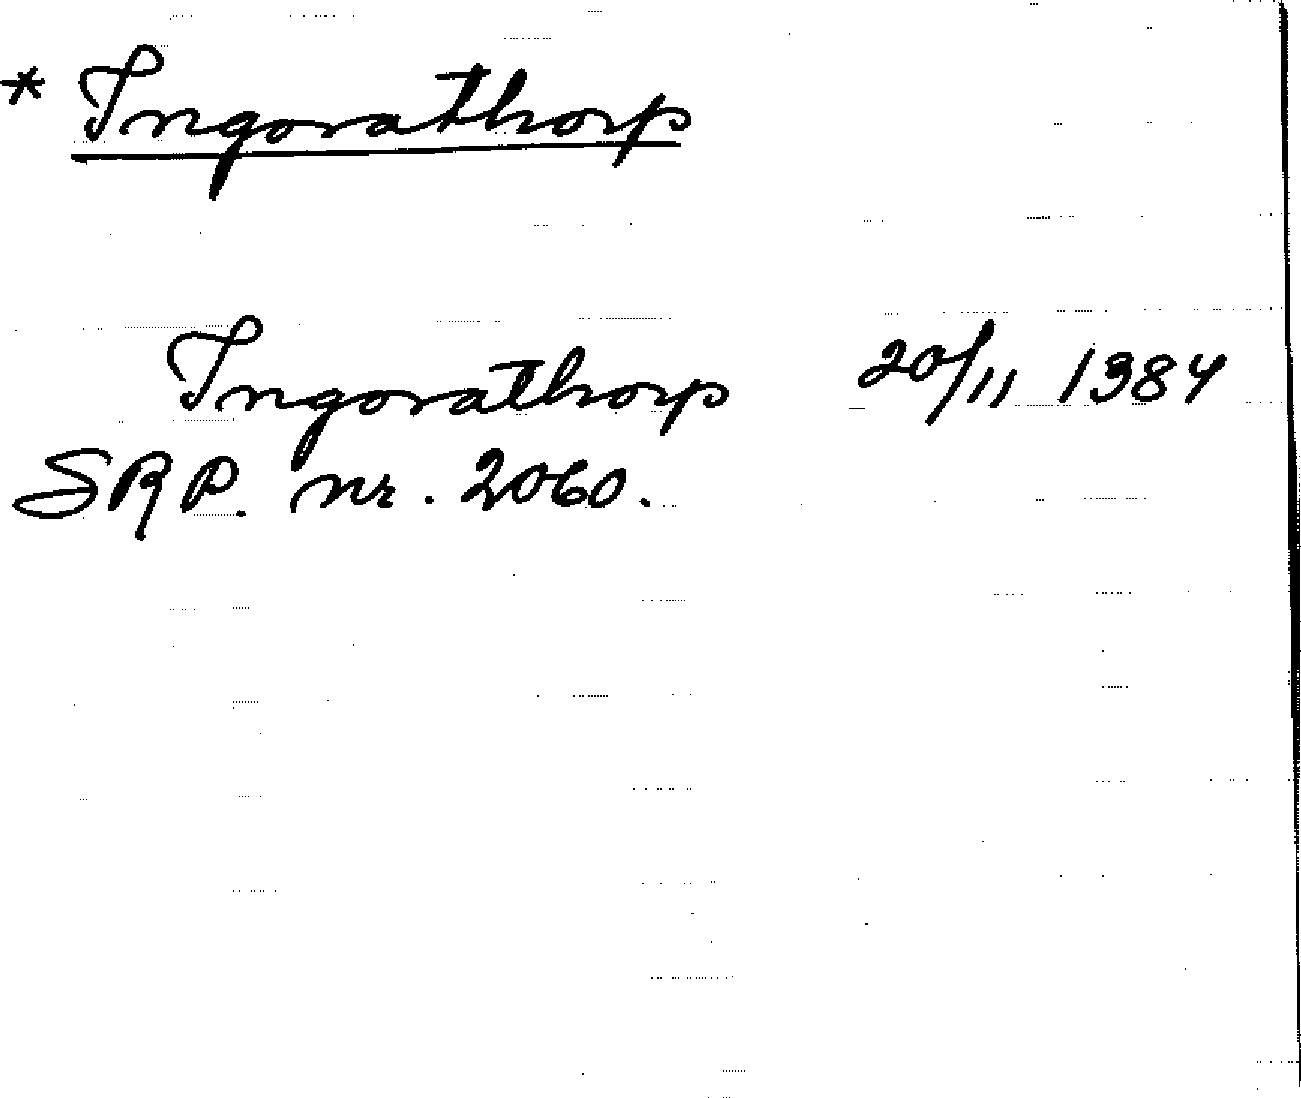 * Ingorathorp
Ingorathorp 20/11 1384
SRP. nr. 2060.